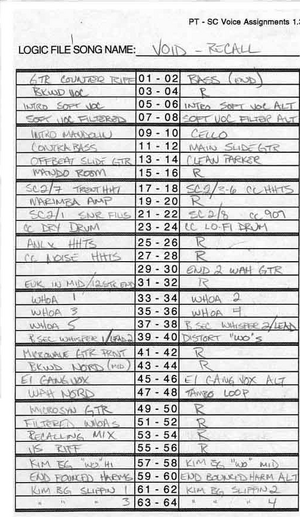 PT - SC Voice Assignments 1.
LOGIC FILE SONG NAME: VOID - RECALL
GTR COUNTER RIFF 01 - 02 BASS (END)
BKWD VOC 03 - 04 R
INTRO SOFT VOC 05 - 06 INTRO SOFT VOC ALT
SOFT VOC FILTERED 07 - 08 SOFT VOC FILTER ALT
INTRO MANDOLIN 09 - 10 CELLO
CONTRABASS 11 - 12 MAIN SLIDE GTR
OFFBEAT SLIDE GTR 13 - 14 CLEAN PARKER
MANDO ROOM 15 - 16 R
SC2/7 TRENT HH? 17 - 18 SC2/3-6 CC HHTS
MARIMBA AMP 19 - 20 R
SC2/1 SNR FILLS 21 - 22 SC2/8 CC 909
CC DRY DRUM 23 - 24 CC LO-FI DRUM
HHTS 25 - 26 R
CC NOISE HHTS 27 - 28 R
29 - 30 END 2 WAH GTR
IN MID/12STR END 31 - 32 R
WHOA 1 33 - 34 WHOA 2
WHOA 3 35 - 36 WHOA 4
WHOA 5 37 - 38 B SEC WHISPER 2/LEAD
B SEC WHISPER 1/LEAD 2 39 - 40 DISTORT "WO"S
MICROWAVE GTR FRONT 41 - 42 R
BKWD NORD (MID) 43 - 44 R
E1 GANG VOX 45 - 46 E1 GANG VOX ALT
WAH NORD 47 - 48 TAMBO LOOP
MICROSYN GTR 49 - 50 R
FILTERED WHOAS 51 - 52 R
RECALLING MIX 53 - 54 R
VS RIFF 55 - 56 R
KIM BG "WO" HI 57 - 58 KIM BG "WO" MID
END BOUNCED HARMS 59 - 60 END BOUNCED HARM ALT
KIM BG SLIPPIN 1 61 - 62 KIM BG SLIPPIN 2
" " " 3 63 - 64 " " " 4